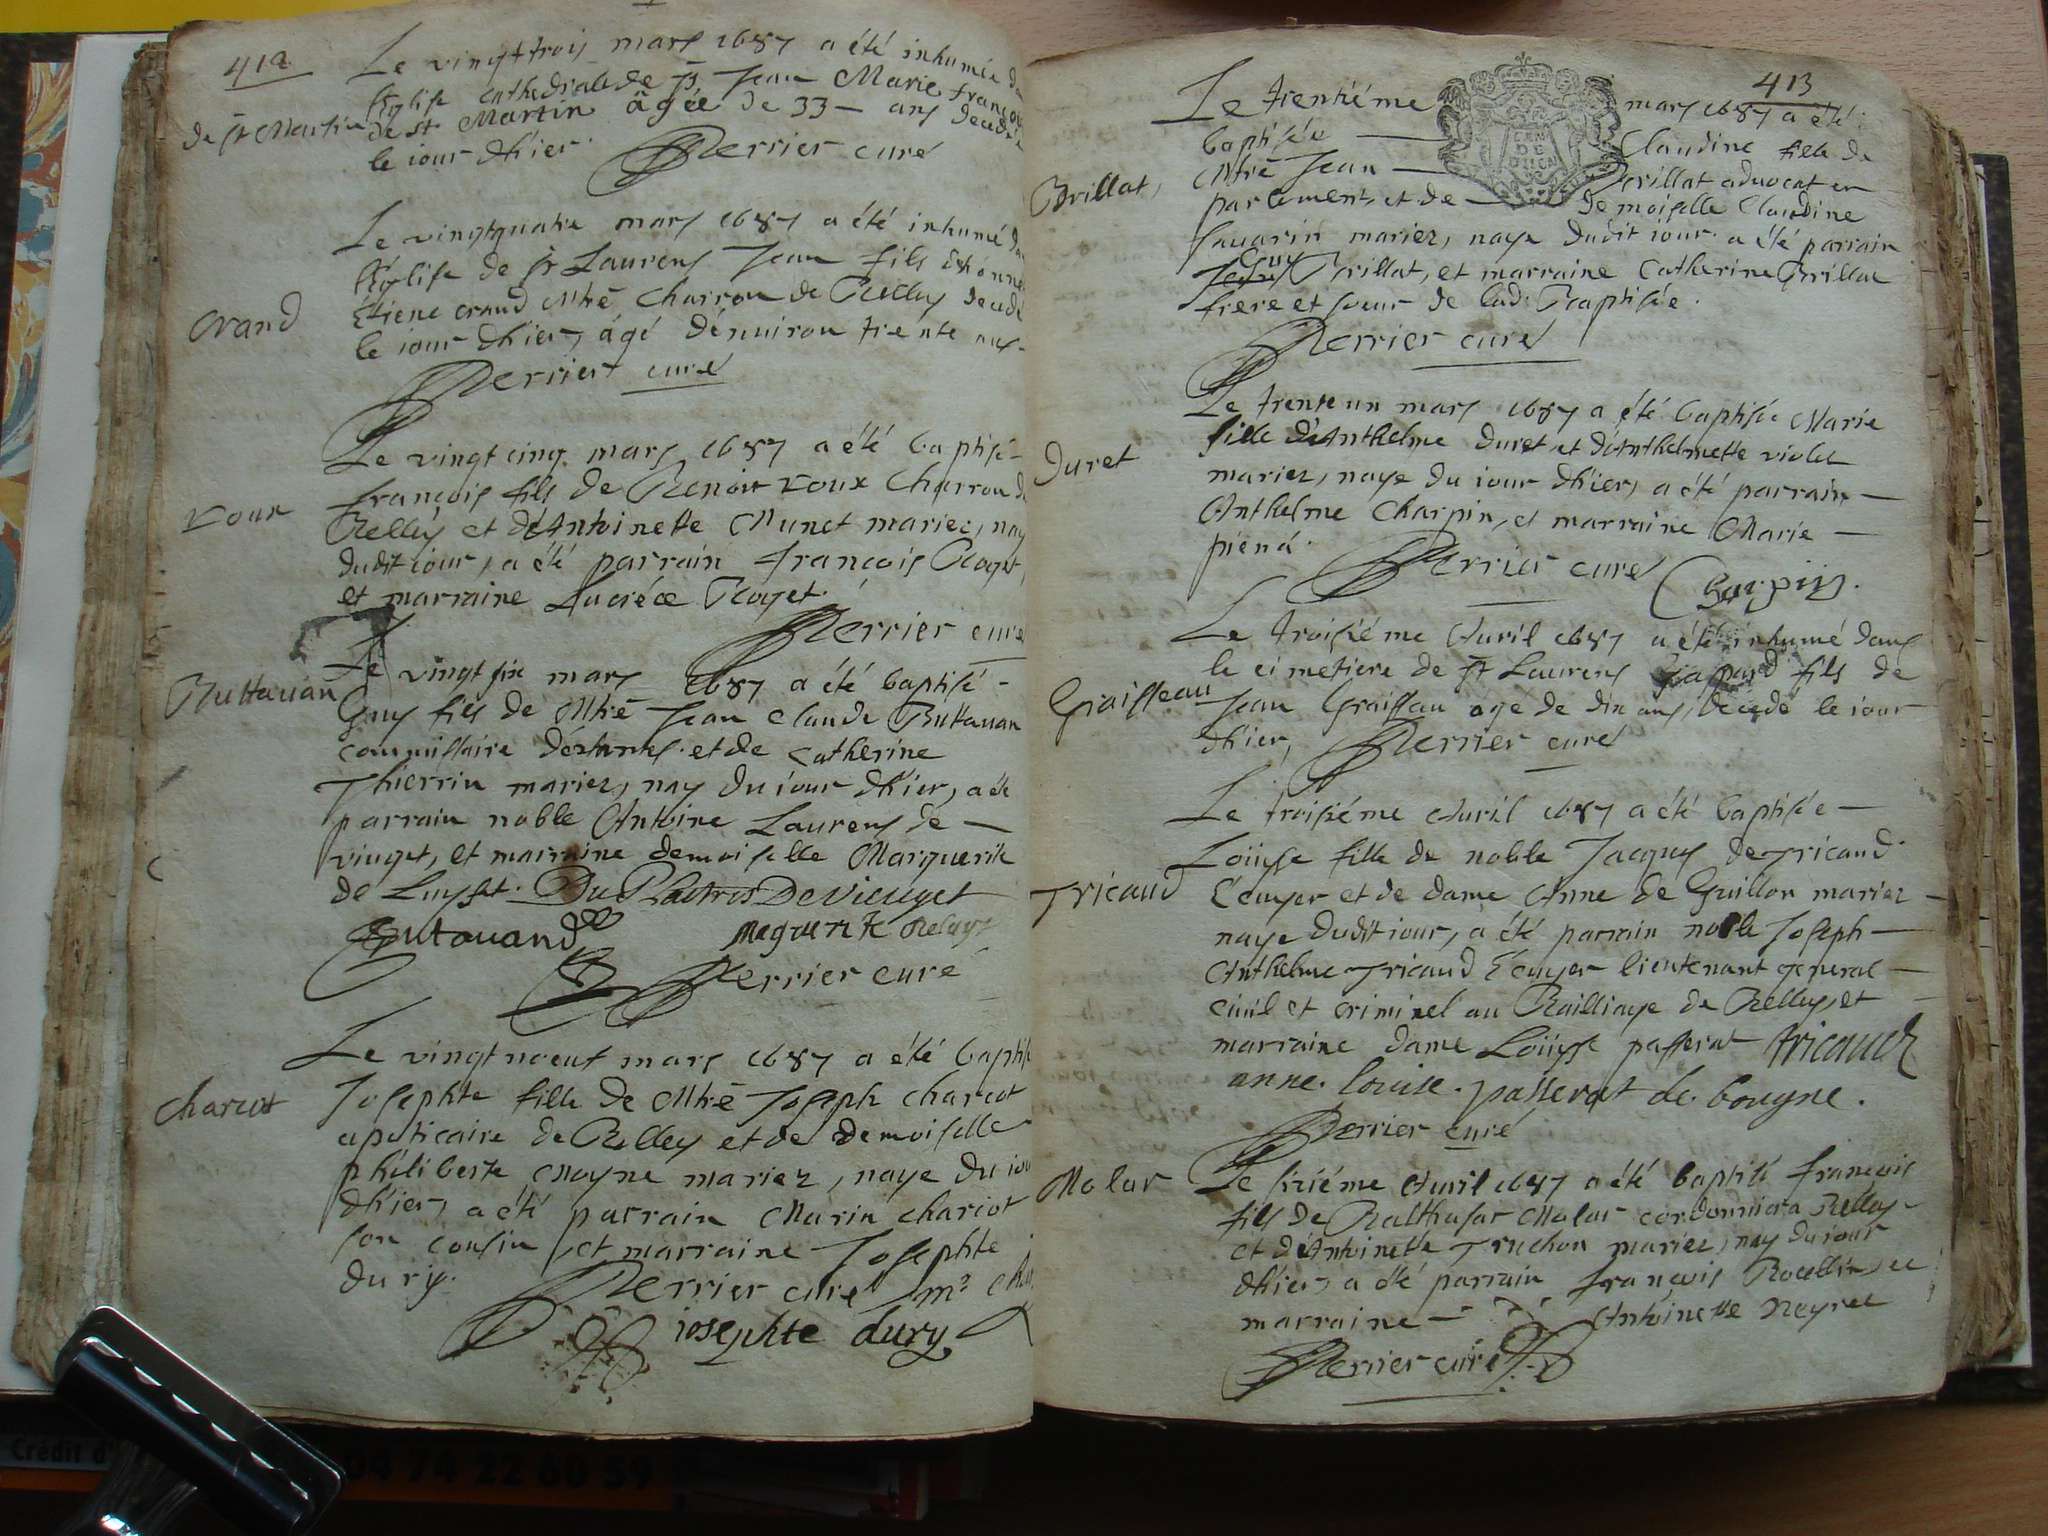 412
Le vingt trois mars 1687 a été inhumée
Eglise cathedrale de St Jean Marie
de St Martin
de St Martin âgée de 33 — ans decedée
le iour dhier.
Perrier curé
Le vingtquatre mars 1687 a été inhumé
Eglise de St Laurens Jean fils
Grand
Etiene Grand Mtre Charron de Belley decedé
le iour dhier, âgé dénuiron trente ans
Perrier curé
Le vingt cinq mars 1687 a été baptisé
Roux
françois fils de Benoit Roux Charron de
Belley et déAntoinette Munet mariez, nay
dudit iour, a été parrain françois Roget
et marraine Lucréce Roget.
Perrier curé
Le vingt six mars 1687 a été baptisé
Buttauan
Guy fils de Mtre Jean Claude Buttauan
commissaire et de Catherine
Thierrin mariez, nay du iour dhier, a été
parrain noble Antoine Laurens de —
vieuget, et marraine demoiselle Marguerite
de Luyset. Du Plastros De Vieuget
Butauand
Marguerite
Perrier curé
Le vingt noeuf mars 1687 a été baptisée
Charcot
Josephte fille de Mtre Joseph Charcot
apoticaire de Belley et de demoiselle
philiberte Moyne mariez, naye du iour
dhier, a été parrain Marin Charcot
son cousin et marraine Josephte
dury.
Perrier curé
iosephte dury
413
Le trentiéme mars 1687 a été
baptisée — Claudine fille de
Brillat,
Mtre Jean — Brillat aduocat en
parlement et de — demoiselle Claudine
sauarin mariez, naye dudit iour. a été parrain
Guy
Brillat, et marraine Catherine Brillat
frere et soeur de lad. Baptisée.
Perrier curé
Le trente un mars 1687 a été baptisée Marie
Duret
fille déAnthelme Duret et déAnthelmette violet
mariez, naye du iour dhier, a été parrain —
Anthelme Charpin, et marraine Marie —
piená.
Perrier curé Charpin.
Le troisiéme Auril 1687 a été inhumé dans
le cimetiere de St Laurens Gaspard fils de
Graisseau
Jean Graisseau age de dix ans, decedé le iour
dhier, Perrier curé
Le troisiéme Auril 1687 a été baptisée —
Loüyse fille de noble Jacques de Tricaud
Tricaud
Ecuyer et de dame Anne de Guillon mariez —
naye dudit iour, a été parrain noble Joseph —
Anthelme Tricaud Ecuyer lieutenant general —
ciuil et criminel au Bailliage de Belley, et —
marraine dame Loüyse passerat tricaud
anne. louise. passerat de. bougne.
Perrier curé
Molar
Le siziéme Auril 1687 a été baptisé françois
fils de Balthasar Molar cordonnier a Belley
et déAntoinette Truchon mariez, nay du iour
dhier, a été parrain françois Rocellin, et
marraine — Antoinette Neyret
Perrier curé
Crédit d'
04 74 22 60 59